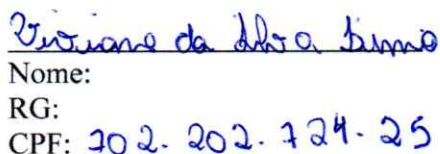 Viviane da Silva
Nome:
RG:
CPF: 702.202.724-25